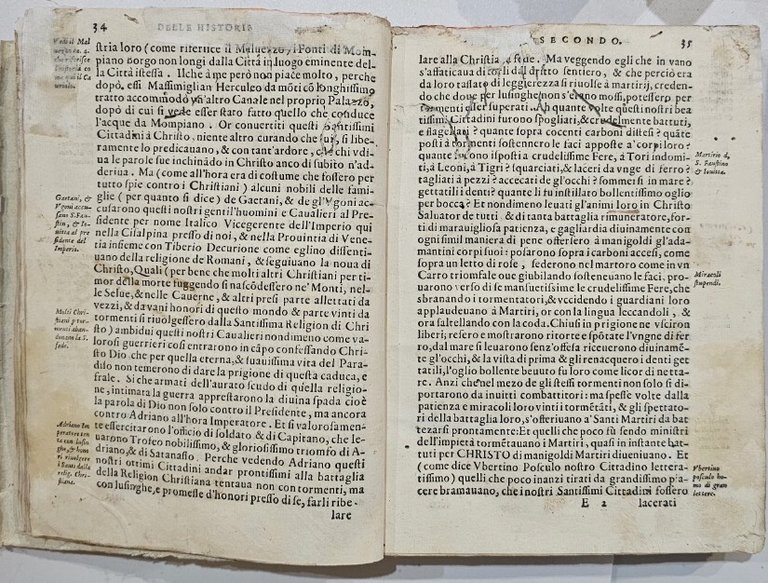 34 DELLE HISTORIE
stria loro (come riferisce il Meluezzo) i Fonti di Mom-
piano Borgo non longi dalla Città in luogo eminente del-
la Città istessa. Ilche à me però non piace molto, perche
dopò, essi Massimiglian Herculeo da mõti cõ longhissimo
tratto accommodò vn'altro Canale nel proprio Palazzo,
dopò di cui si vede essere stato fatto quello che conduce
l'acque da Mompiano. Or conuertiti questi Santissimi
Cittadini à Christo, niente altro curando che sui, si libe-
ramente lo predicauano, & con tant'ardore, che chi vdi-
ua le parole sue inchinãdo in Christo anco di subito n'ad-
deriua. Ma (come all'hora era di costume che fossero per
tutto spie contro i Christiani) alcuni nobili delle fami-
glie (per quanto si dice) de Gaetani, & de gl'Vgoni ac-
cusarono questi nostri gentil'huomini e Caualieri al Pre-
sidente per nome Italico Vicegerente dell'Imperio qui
nella Cisalpina presso di noi, & nella Prouintia di Vene-
tia insieme con Tiberio Decurione come eglino dissenti-
uano della religione de Romani, & seguiuano la noua di
Christo, Quali (per bene che molti altri Christiani per ti-
mor della morte fuggendo si nascõdessero ne' Monti, nel-
le Selue, & nelle Cauerne, & altri presi parte allettati da
vezzi, & da vani honori di questo mondo & parte vinti da
tormenti si riuolgessero dalla Santissima Religion di Chri
sto) ambidui questi nostri Caualieri nondimeno come va-
lorosi guerrieri così entratono in cãpo confessando Chri-
sto Dio che per quella eterna, & suauissima vita del Para-
diso non temerono di dare la prigione di questa caduca, e
frale. Si che armati dell'aurato scudo di quella religio-
ne, intimata la guerra apprestarono la diuina spada cioè
la parola di Dio non solo contro il Presidente, ma ancora
contro Adriano all'hora Imperatore. Et si valorosamen-
te essercitarono l'officio di soldato, & di Capitano, che le-
uarono Trofeo nobilissimo, & gloriosissimo triomfo di A-
driano, & di Satanasso. Perche vedendo Adriano questi
nostri ottimi Cittadini andar prontissimi alla battaglia
della Religion Christiana tentaua non con tormenti, ma
con lusinghe, e promesse d'honori presso di se, farli ribe-
lare
Gaetani, &
Vgoni accu-
sano S. Fau-
stin, & Io-
uita al pre-
sidente del
Imperio.
Molti Chri-
stiani p tor-
menti aban-
donano la S.
fede.
Adriano Im-
peratore ten-
ta con lusin-
ghe, & hono
ri riuolgere
i Santi dalla
relig. Chri-
stiana.
SECONDO. 35
lare alla Christiana fede. Ma veggendo egli che in vano
s'affaticaua di torli dal dritto sentiero, & che perciò era
da loro tassato di leggierezza si riuolse à martirij, creden-
do che doue per lusinghe non s'erano mossi, potessero per
tormenti esser superati. Ah quante volte questi nostri bea-
tissimi Cittadini furono spogliati, & crudelmente battuti,
e flagellati? quante sopra cocenti carboni distesi? quãte
posati i tormenti sostennero le faci apposte a' corpi loro?
quante furono isposti a crudelissime Fere, à Tori indomi-
ti, à Leoni, à Tigri? squarciati, & laceri da vnge di ferro
tagliati à pezzi? accecati de gl'occhi? sommersi in mare?
gettatili i denti? quante li fu instillato bollentissimo oglio
per bocca? Et nondimeno leuati gl'animi loro in Christo
Saluator de tutti & di tanta battaglia rimuneratore, forti
di marauigliosa patienza, e gagliarda diuinamente con
ogni simil maniera di pene offersero à manigoldi gl'ada-
mantini corpi suoi: posarono sopra i carboni accesi, come
sopra un letto di rose, sederono nel martoro come in vn
Carro triomfale oue giubilando sosteneuano le faci, pro-
uarono verso di se mansuetissime le crudelissime Fere, che
sbranando i tormentatori, & vccidendo i guardiani loro
applaudeuano à Martiri, or con la lingua leccandoli, &
ora saltellando con la coda. Chiusi in prigione ne vsciron
liberi, resero e mostrarono ritorte e spõtate l'vngne di fer
ro, dal mare si leuarono senz'offesa riceuerono diuinamẽ-
te gl'occhi, & la vista di prima & gli renacquero i denti get
tatali, l'oglio bollente beuuto fu loro come licor di netta-
re. Anzi che nel mezo de gli stessi tormenti non solo si di-
portarono da inuitti combattitori: ma spesse volte dalla
patienza e miracoli loro vinti i tormẽtãti, & gli spettato-
ri della battaglia loro, s'offeriuano a' Santi Martiri da bat-
tezarsi prontamente: Et quelli che poco fu sendo ministri
dell'impietà tormẽtauano i Martiri, quasi in instante bat-
tuti per CHRISTO di manigoldi Martiri diueniuano. Et
(come dice Vbertino Posculo nostro Cittadino lettera-
tissimo) quelli che poco inanzi tirati da grandissimo pia-
cere bramauano, che i nostri Santissimi Cittadini fossero
E 2 lacerati
Martirio di
S. Faustino
& Iouita.
Miracoli
stupendi.
Vbertino
posculo ho-
mo di gran
lettere.